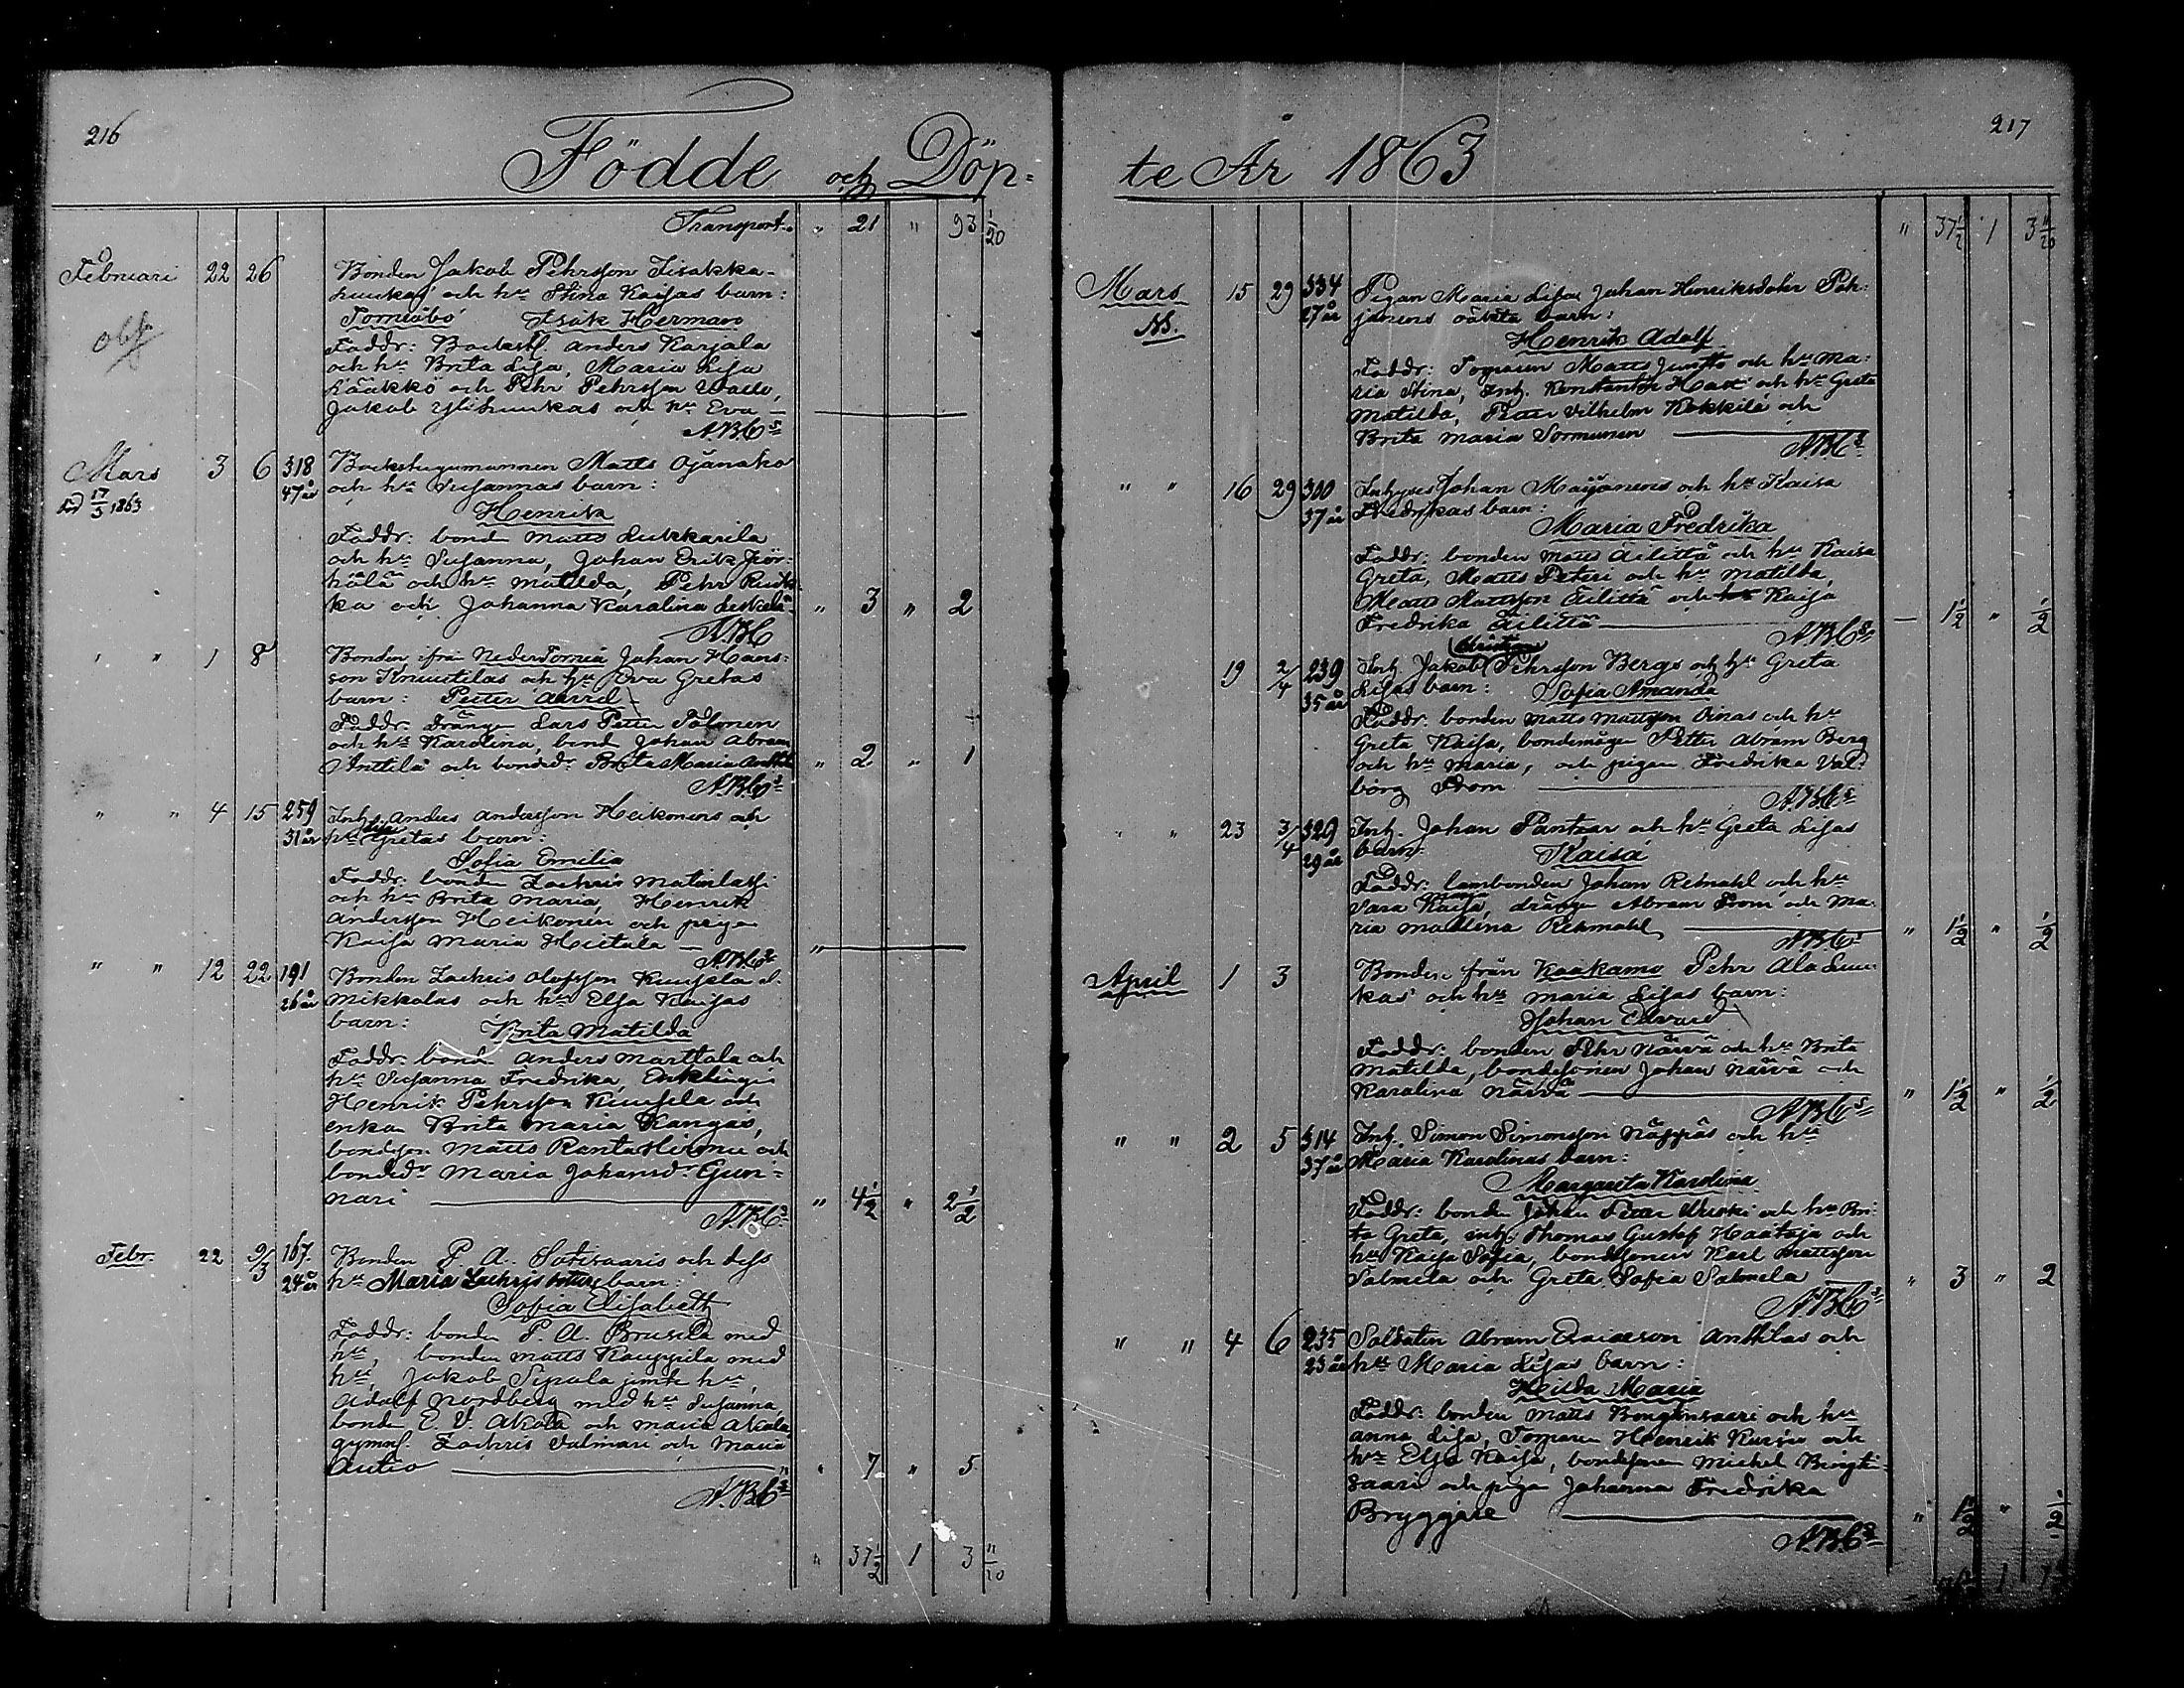 216
Födde och Döp-
Transport. " 21 " 93 1/20
Februari 22 26 Bonden Jakob Pehrsson
och hu Stina Kaisas barn:
Obs Torneåbo Isak Herman
Faddr: Anders Karjala
och hu Brita Lisa, Maria Lisa
och Pehr Pehrsson
Jakob och hu Eva —
A.B.Cs
Mars 3 6 318 Backstugumannen Matts Ojanaho
död 17/3 1863 47 år och hu Susannas barn:
Henrik
Faddr: bonden Matts
och hu Susanna, Johan Erik
och hu Matilda, Pehr
ka och Johanna Karolina " 3 " 2
A.B.C
" " 1 8 Bonden ifrån NederTorneå Johan Hans-
son Knuutilas och hu Eva Gretas
barn: Petter Arvid
Faddr: drängen Lars Petter Palonen
och hu Karolina, bond. Johan Abram
Anttila och bonded. Brita Maria Anttila " 2 " 1
A.B.Cs
" " 4 15 259 Inh. Anders Andersson Heikonens och
31 år hu Lisa Gretas barn:
Sofia Emilia
Faddr: bonden Zachris Matinlassi
och hu Brita Maria, Henrik
Andersson Heikonen och pigan
Kaisa Maria Hietala —
A.B.Cs
" " 12 22 191 Bonden Zachris Olofsson Kuusela l.
26 år Mikkolas och hu Elsa Kaisas
barn: Brita Matilda
Faddr: bond. Anders Marttala och
hu Susanna Fredrika, Enklingen
Henrik Pehrsson Kuusela och
enkan Brita Maria Kangas,
bondeson Matts RantaHirmu och
bonded. Maria Johansdr Gun-
nari " 4 1/2 " 2 1/2
A.B.Cs
Febr. 22 9/3 167 Bonden P. A. Sotisaaris och dess
24 år hu Maria Zachris dotters barn:
Sofia Elisabeth
Faddr: bonden P. A. Brusila med
hu, bonden Matts Kauppila med
hu, Jakob Sipola jemte hu,
Adolf Nordberg med hu Susanna,
bonden E. V. Alatalo och Maria
gymns. Zachris Salmari och Maria
Autio " 7 " 5
A.B.Cs
" 37 1/2 1 3 11/20
217
te År 1863
" 37 1/2 1 3 11/20
Mars 15 29 334 Pigan Maria Lisa Johan Henriksdotter Poh-
N.S. 27 år janens oäkta barn:
Henrik Adolf
Faddr: Torparen Matts Juntto och hu Ma-
ria Stina, Inh. Konstantin och hu Greta
Matilda, Petter Vilhelm Kokkila och
Brita Maria Sormunen
A.B.Cs
" " 16 29 300 Inhyses Johan Maijanens och hu Kaisa
37 år Fredrikas barn:
Maria Fredrika
Faddr: bonden Matts Äilittä och hu Kaisa
Greta, Matts Peteri och hu Matilda,
Matts Mattsson Äilittä och hu Kaisa
Fredrika Äilittä — 1 1/2 " 1/2
A.B.Cs
19 2/4 239 Inh. Jakob Christian Pehrsson Bergs och hu Greta
35 år Lisas barn: Sofia Amanda
Faddr: bonden Matts Mattsson Oinas och hu
Greta Kaisa, bondemågen Petter Abram Berg
och hu Maria, och pigan Fredrika Val-
borg From
A.B.Cs
" " 23 3/4 329 Inh. Johan Pantzar och hu Greta Lisas
29 år barn: Kaisa
Faddr: lambonden Johan Rekmahl och hu
Sara Kaisa, drängen Abram From och Ma-
ria Matlena Rekmahl " 1 1/2 " 1/2
A.B.Cs
April 1 3 Bonden från Kaakamo Pehr
kas och hu Maria Lisas barn:
Johan Edvard
Faddr: bonden Pehr Närvä och hu Brita
Matilda, bondesonen Johan Närvä och
Karolina Närvä " 1 1/2 " 1/2
A.B.Cs
" " 2 5 314 Inh. Simon Simonsson Näppäs och hu
37 år Maria Karolinas barn:
Margareta Karolina
Faddr: bonden Johan Petter och hu Bri-
ta Greta, inh. Thomas Gustaf Haataja och
hu Kaisa Sofia, bondesonen Karl Mattsson
Salmela och Greta Sofia Salmela " 3 " 2
A.B.Cs
" " 4 6 235 Soldaten Abram Ericsson Anttilas och
23 år hu Maria Lisas barn:
Hilda Maria
Faddr: bonden Matts och hu
Anna Lisa, Torparen Henrik och
hu Elsa Kaisa, bondesonen Michel
saari och pigan Johanna Fredrika
Bryggare " 1 1/2 " 1/2
A.B.Cs